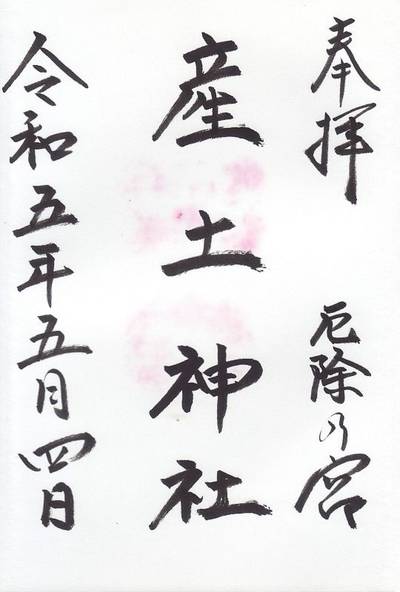 奉拝 厄除乃宮
産土神社
令和五年五月四日